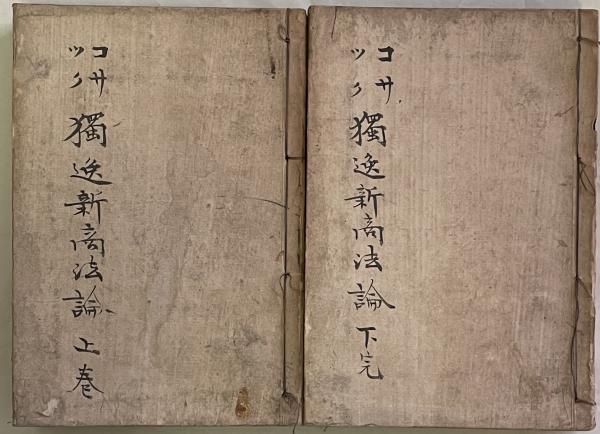 コサ
ツク
獨逸新商法論 上巻
コサ
ツク
獨逸新商法論 下完